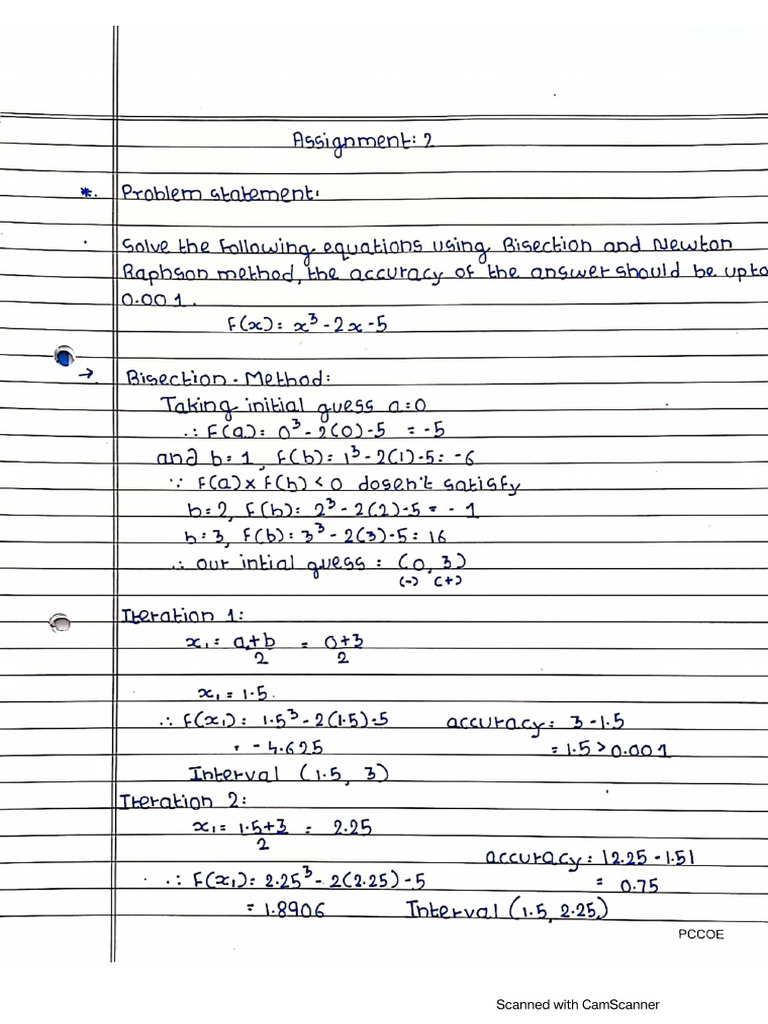 Assignment: 2
*. Problem statement:
. Solve the following equations using Bisection and Newton
Raphson method, the accuracy of the answer should be upto
0.001.
F(x): x³ - 2x - 5
→ Bisection - Method:
Taking initial guess a=0
∴ F(a): 0³ - 2(0) - 5 = -5
and b=1, F(b): 1³ - 2(1) - 5 = -6
∵ F(a) x F(b) < 0 dosen't satisfy
b=2, F(b): 2³ - 2(2) - 5 = - 1
b=3, F(b): 3³ - 2(3) - 5 = 16
∴ our intial guess : (0, 3)
(-) (+)
Iteration 1:
x₁ = a+b/2 = 0+3/2
x₁ = 1.5.
∴ F(x₁) = 1.5³ - 2(1.5) - 5 accuracy: 3 - 1.5
= - 4.625 = 1.5 > 0.001
Interval (1.5, 3)
Iteration 2:
x₁ = 1.5+3/2 = 2.25
accuracy: |2.25 - 1.5|
∴ F(x₁) = 2.25³ - 2(2.25) - 5 = 0.75
= 1.8906 Interval (1.5, 2.25)
PCCOE
Scanned with CamScanner